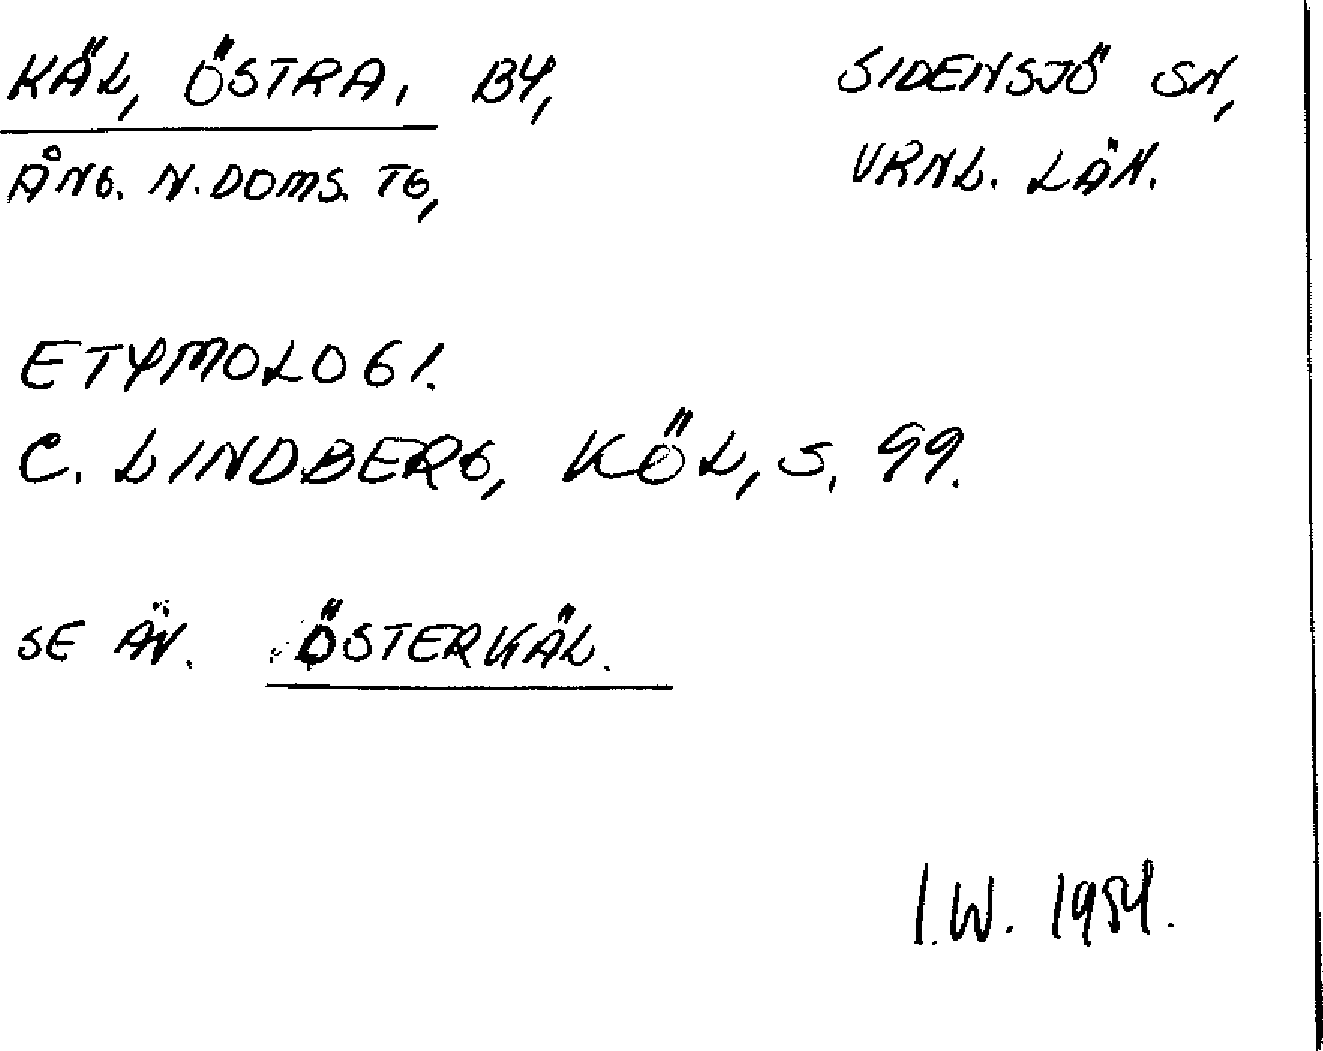 KÄL, ÖSTRA, BY, SIDENSJÖ SN,
ÅNG. N. DOMS. TG, VRNL. LÄN.
ETYMOLOGI.
C. LINDBERG, KÖL, S. 99.
SE ÄV. ÖSTERKÄL.
I.W. 1954.